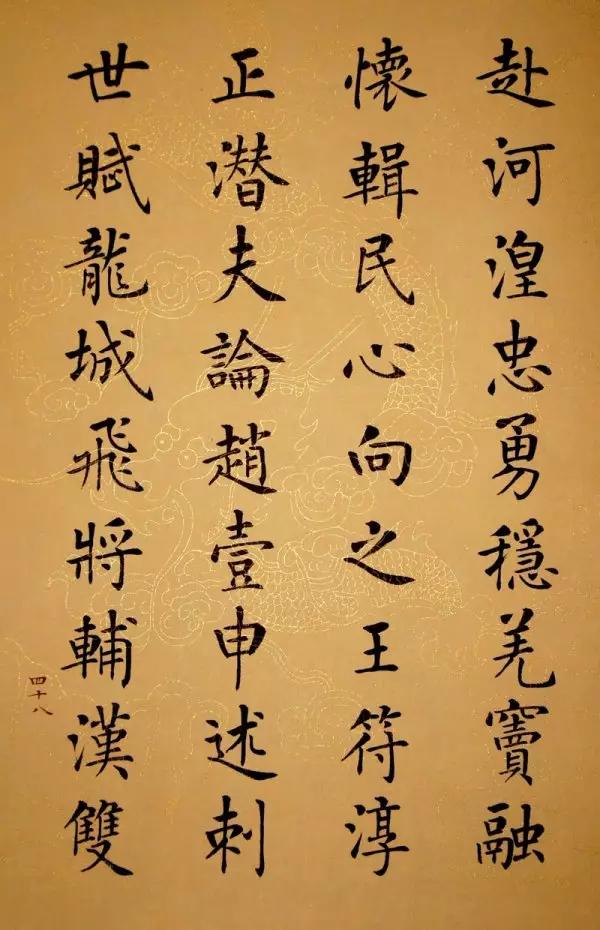 赴河湟忠勇穩羌竇融
懷輯民心向之王符淳
正潛夫論趙壹申述刺
世賦龍城飛將輔漢雙
四十八